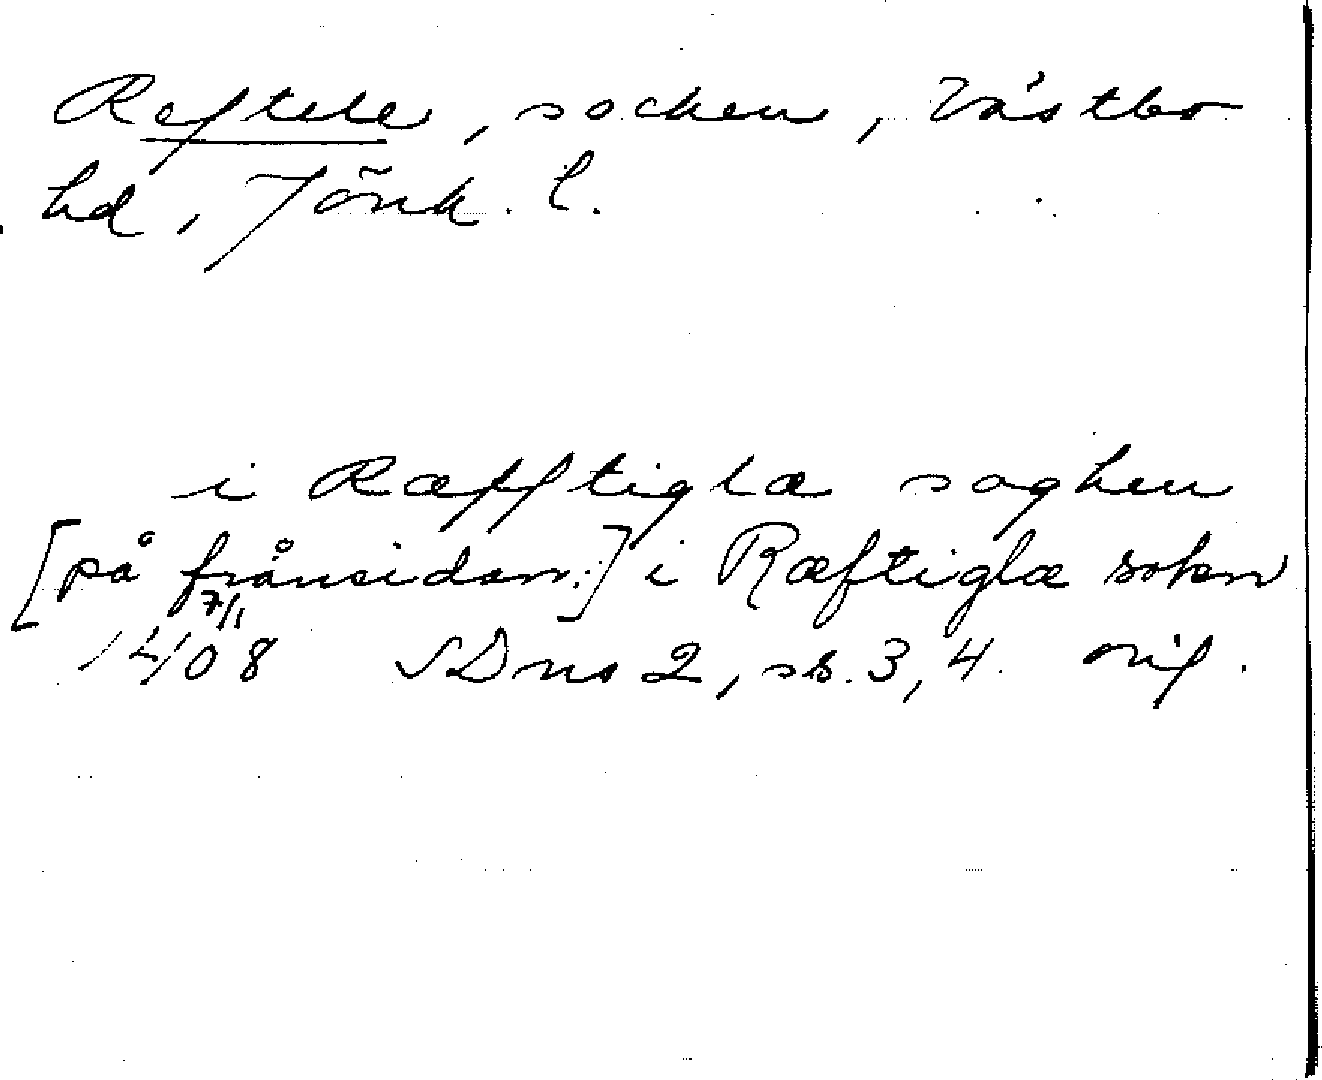 Reftele, socken, Västbo
hd, Jönk. l.
i Ræfftigla soghen
[på frånsidan:] i Ræftigla sokn
7/1
1408 SDns 2, ss. 3, 4. orig.